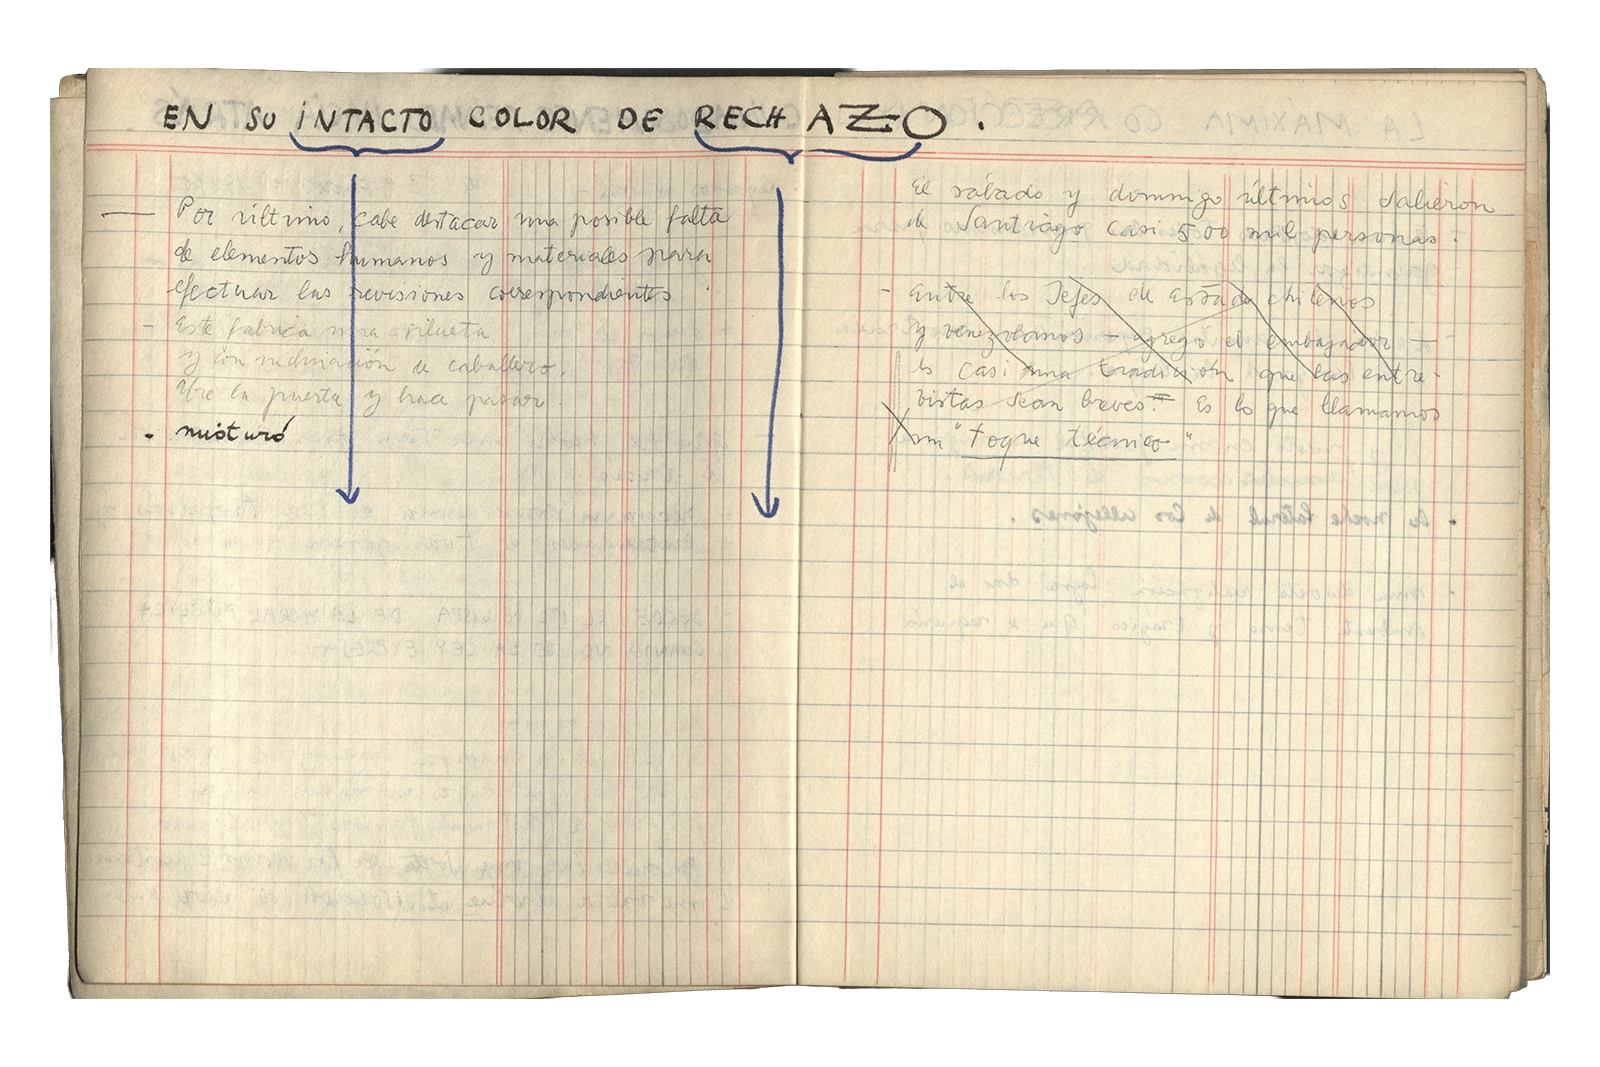 EN SU INTACTO COLOR DE RECHAZO.
— Por último, cabe destacar una posible falta
de elementos humanos y materiales para
efectuar las revisiones correspondientes.
- Este fabrica una silueta
y con inclinación de caballero,
Abre la puerta y hace pasar.
- misturó
El sábado y domingo últimos salieron
de Santiago casi 500 mil personas.
- Entre los Jefes de Estado chilenos
y venezolanos — agregó el embajador —
es casi una tradición que las entre-
vistas sean breves. Es lo que llamamos
un "toque técnico"